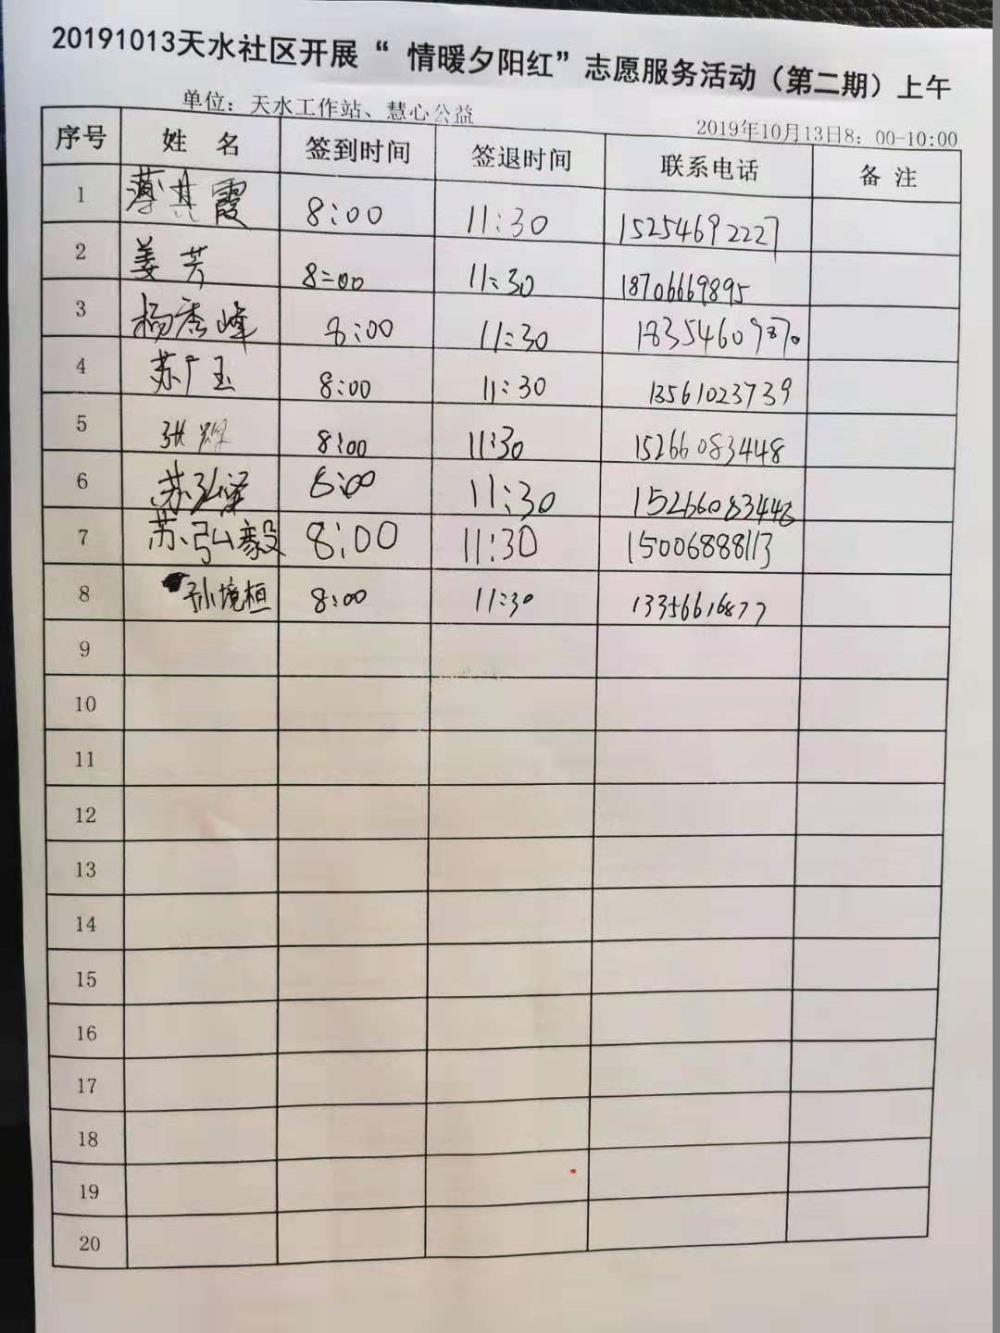 20191013天水社区开展“ 情暖夕阳红”志愿服务活动（第二期）上午
单位：天水工作站、慧心公益
2019年10月13日8：00-10:00
序号 姓 名 签到时间 签退时间 联系电话 备 注
1 薄其霞 8:00 11:30 15254692227
2 姜芳 8:00 11:30 18706669895
3 杨秀峰 8:00 11:30 18354609870
4 苏广玉 8:00 11:30 13561023739
5 张 8:00 11:30 15266083448
6 苏弘 8:00 11:30 15266083448
7 苏弘毅 8:00 11:30 15006888113
8 孙境桓 8:00 11:30 13356616877
9
10
11
12
13
14
15
16
17
18
19
20